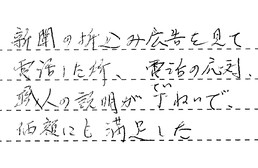 新聞の折込み広告を見て
電話した所、電話の応対、
職人の説明がていねいで、
価額にも満足した